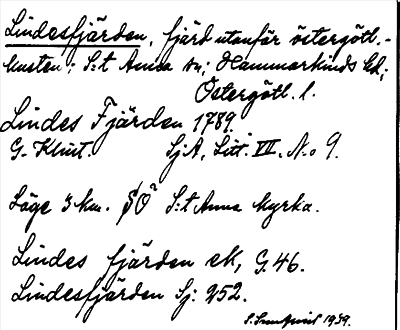 Lindesfjärden, fjärd utanför östergötl.-
kusten; S:t Anna sn; Hammarkinds hd;
Östergötl. l.
Lindes Fjärden 1789.
G. Klint. SjA, Litt. VII. N:o 9.
Läge 3 km. SO S:t Anna kyrka.
Lindes fjärden ek, G.46.
Lindesfjärden Sj: 252.
1939.